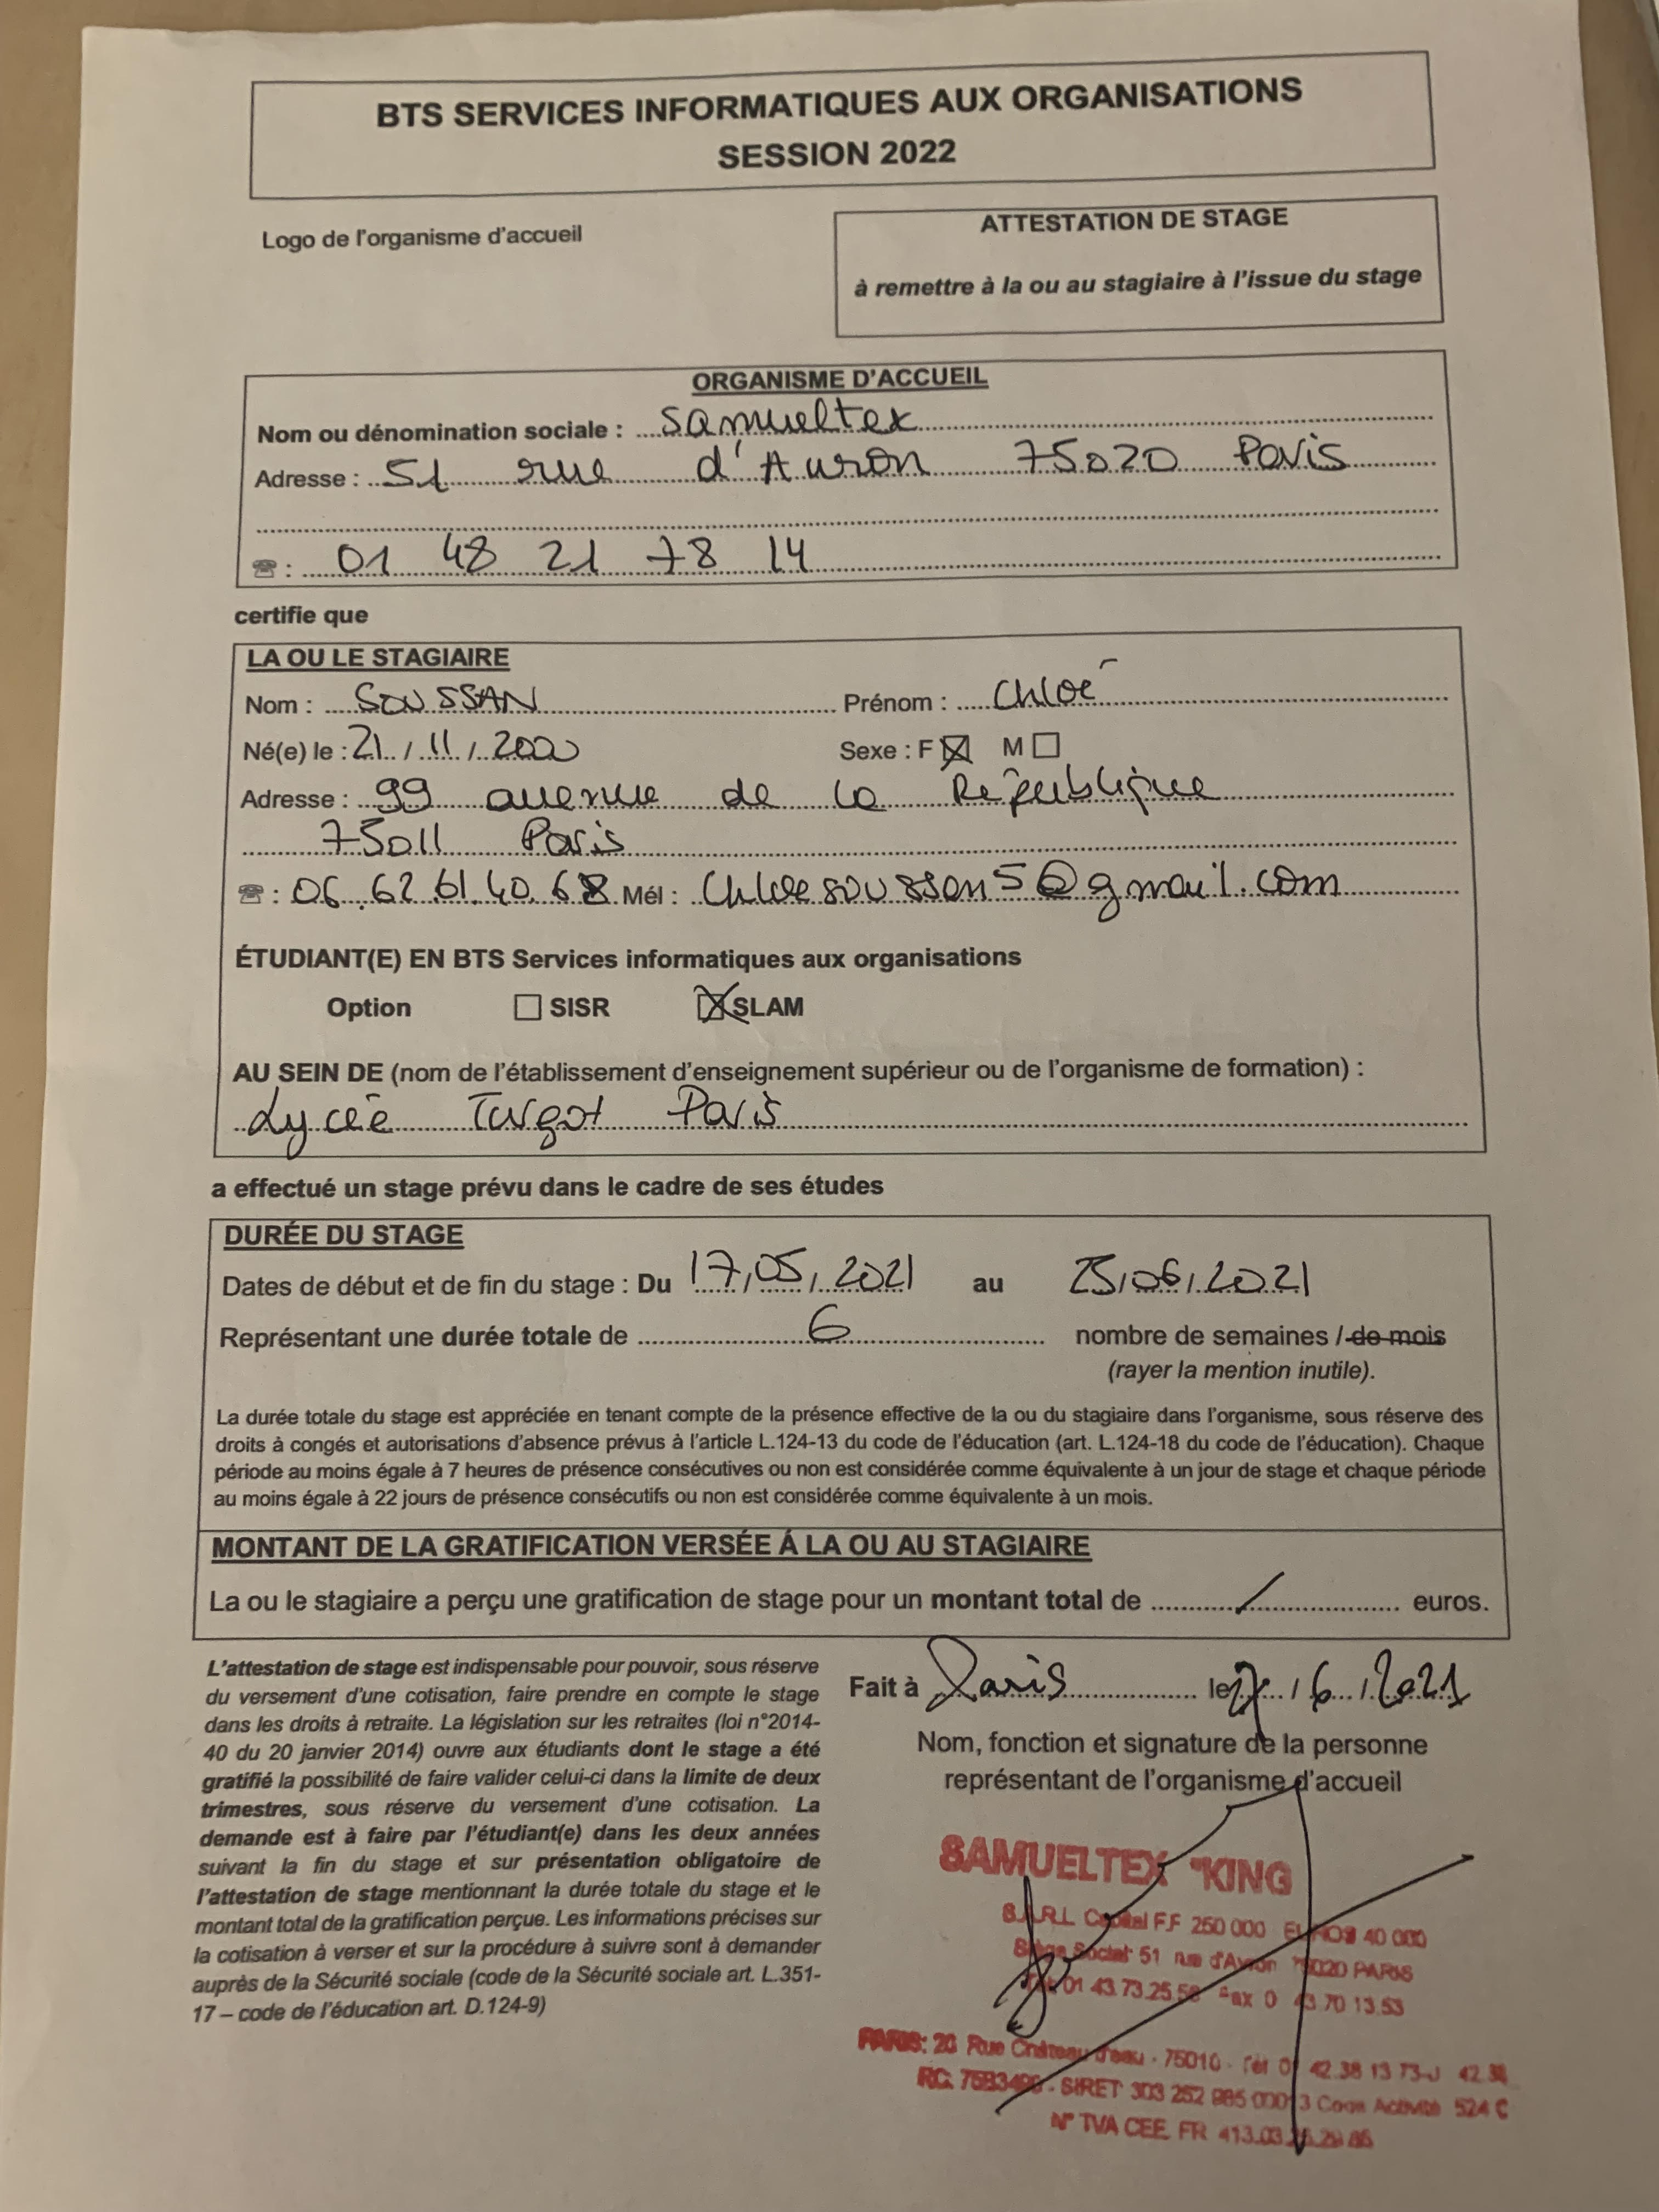 BTS SERVICES INFORMATIQUES AUX ORGANISATIONS
SESSION 2022
Logo de l'organisme d'accueil
ATTESTATION DE STAGE
à remettre à la ou au stagiaire à l'issue du stage
ORGANISME D'ACCUEIL
Nom ou dénomination sociale : Samueltex
Adresse : 51 rue d'Auron 75020 Paris
☎ : 01 48 21 78 14
certifie que
LA OU LE STAGIAIRE
Nom : SOUSSAN Prénom : Chloé
Né(e) le : 21 / 11 / 2000 Sexe : F ☒ M ☐
Adresse : 99 avenue de la République
75011 Paris
☎ : 06.62.61.40.68 Mél : Chloesoussan5@gmail.com
ÉTUDIANT(E) EN BTS Services informatiques aux organisations
Option ☐ SISR ☒ SLAM
AU SEIN DE (nom de l'établissement d'enseignement supérieur ou de l'organisme de formation) :
Lycée Turgot Paris
a effectué un stage prévu dans le cadre de ses études
DURÉE DU STAGE
Dates de début et de fin du stage : Du 17/05/2021 au 25/06/2021
Représentant une durée totale de 6 nombre de semaines / de mois
(rayer la mention inutile).
La durée totale du stage est appréciée en tenant compte de la présence effective de la ou du stagiaire dans l'organisme, sous réserve des
droits à congés et autorisations d'absence prévus à l'article L.124-13 du code de l'éducation (art. L.124-18 du code de l'éducation). Chaque
période au moins égale à 7 heures de présence consécutives ou non est considérée comme équivalente à un jour de stage et chaque période
au moins égale à 22 jours de présence consécutifs ou non est considérée comme équivalente à un mois.
MONTANT DE LA GRATIFICATION VERSÉE Á LA OU AU STAGIAIRE
La ou le stagiaire a perçu une gratification de stage pour un montant total de / euros.
L'attestation de stage est indispensable pour pouvoir, sous réserve
du versement d'une cotisation, faire prendre en compte le stage
dans les droits à retraite. La législation sur les retraites (loi n°2014-
40 du 20 janvier 2014) ouvre aux étudiants dont le stage a été
gratifié la possibilité de faire valider celui-ci dans la limite de deux
trimestres, sous réserve du versement d'une cotisation. La
demande est à faire par l'étudiant(e) dans les deux années
suivant la fin du stage et sur présentation obligatoire de
l'attestation de stage mentionnant la durée totale du stage et le
montant total de la gratification perçue. Les informations précises sur
la cotisation à verser et sur la procédure à suivre sont à demander
auprès de la Sécurité sociale (code de la Sécurité sociale art. L.351-
17 – code de l'éducation art. D.124-9)
Fait à Paris le / 6 / 2021
Nom, fonction et signature de la personne
représentant de l'organisme d'accueil
SAMUELTEX "KING
S.A.R.L Capital F.F 250 000 EUROS 40 000
Siège Social 51 rue d'Avron 75020 PARIS
01 43.73.25. Fax 0 43 70 13.53
PARIS: 20 Rue Château d'eau - 75010 - Tél 0 42.38 13 73 42.38
RC. - SIRET 303 252 985 000 3 Code Activité 524 C
N° TVA CEE. FR 413.03